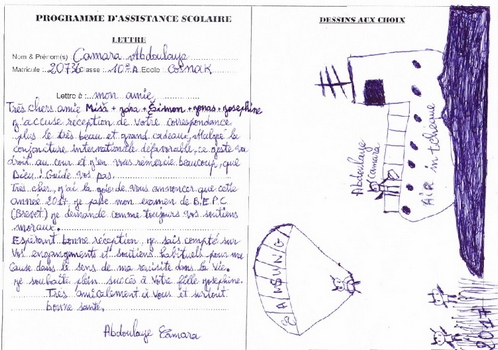 PROGRAMME D'ASSISTANCE SCOLAIRE
LETTRE
Nom & Prénom(s) Camara Abdoulaye
Matricule 20736 Classe 10è A Ecole
Lettre à : mon amie
Très chers amie Misa + zara + Simon + zonas + josephine
j'accuse reception de votre correspondance
plus le très beau et grand cadeau, Malgré la
conjoncture internationale défavorable, ce geste va
droit au cœur et j'en vous remercie beaucoup, que
Dieu Guide vos pas.
Très cher, j'ai la joie de vous annoncer que cette
année 2017 je passe mon examen de B.E.P.C
(Brevet) je demande comme toujours vos soutiens
moraux.
Esperant bonne réception, je sais compté sur
Vos engagements et soutiens habituels pour me
Cause dans le sens de ma reussite dans la Vie.
je souhaite plein succès à Votre fille josephine.
Très amicalement à Vous et surtout
bonne santé.
Abdoulaye Camara
DESSINS AUX CHOIX
Abdoulaye
Camara
AIR
2017